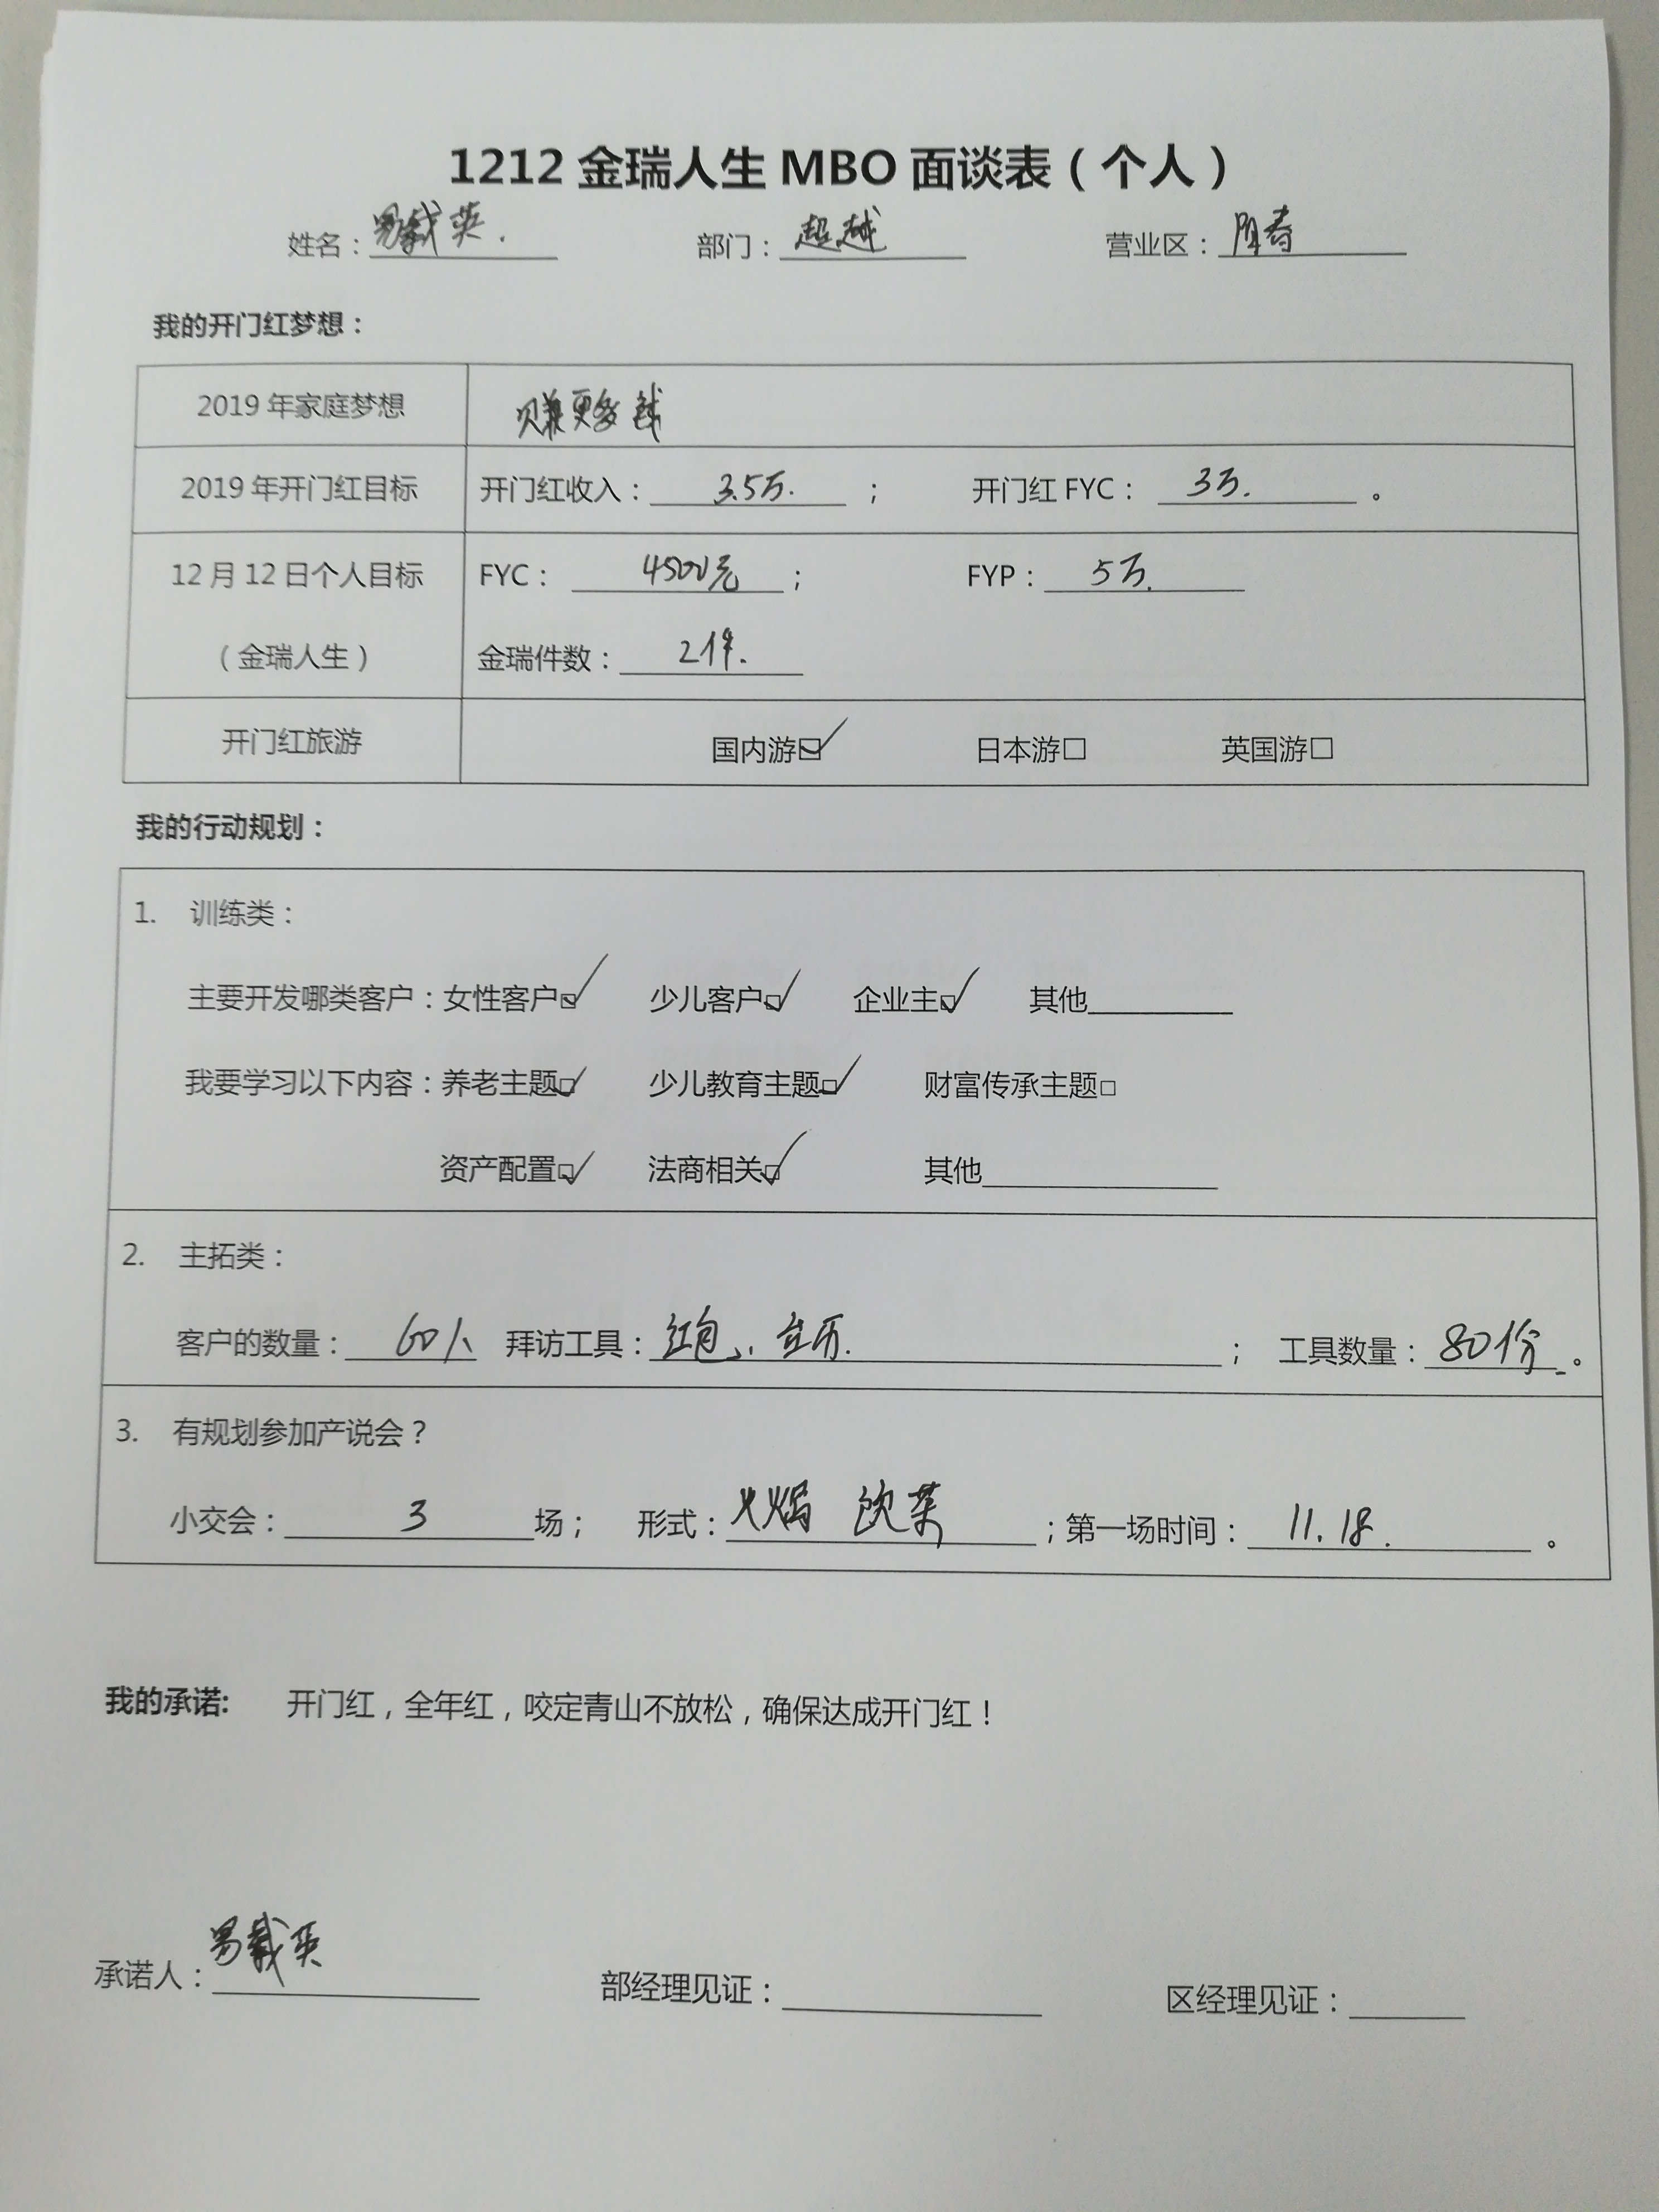 1212 金瑞人生 MBO 面谈表（个人）
姓名： 部门：超越 营业区：阳春
我的开门红梦想：
2019 年家庭梦想 赚更多钱
2019 年开门红目标 开门红收入：3.5万. ； 开门红 FYC：3万. 。
12 月 12 日个人目标 FYC：4500元； FYP：5万.
（金瑞人生） 金瑞件数：2件.
开门红旅游 国内游☑ 日本游□ 英国游□
我的行动规划：
1. 训练类：
主要开发哪类客户：女性客户☑ 少儿客户☑ 企业主☑ 其他
我要学习以下内容：养老主题☑ 少儿教育主题☑ 财富传承主题□
资产配置☑ 法商相关☑ 其他
2. 主拓类：
客户的数量：60人 拜访工具：红包、台历. ； 工具数量：80份。
3. 有规划参加产说会？
小交会：3场； 形式：火焗 ；第一场时间：11.18. 。
我的承诺: 开门红，全年红，咬定青山不放松，确保达成开门红！
承诺人： 部经理见证： 区经理见证：